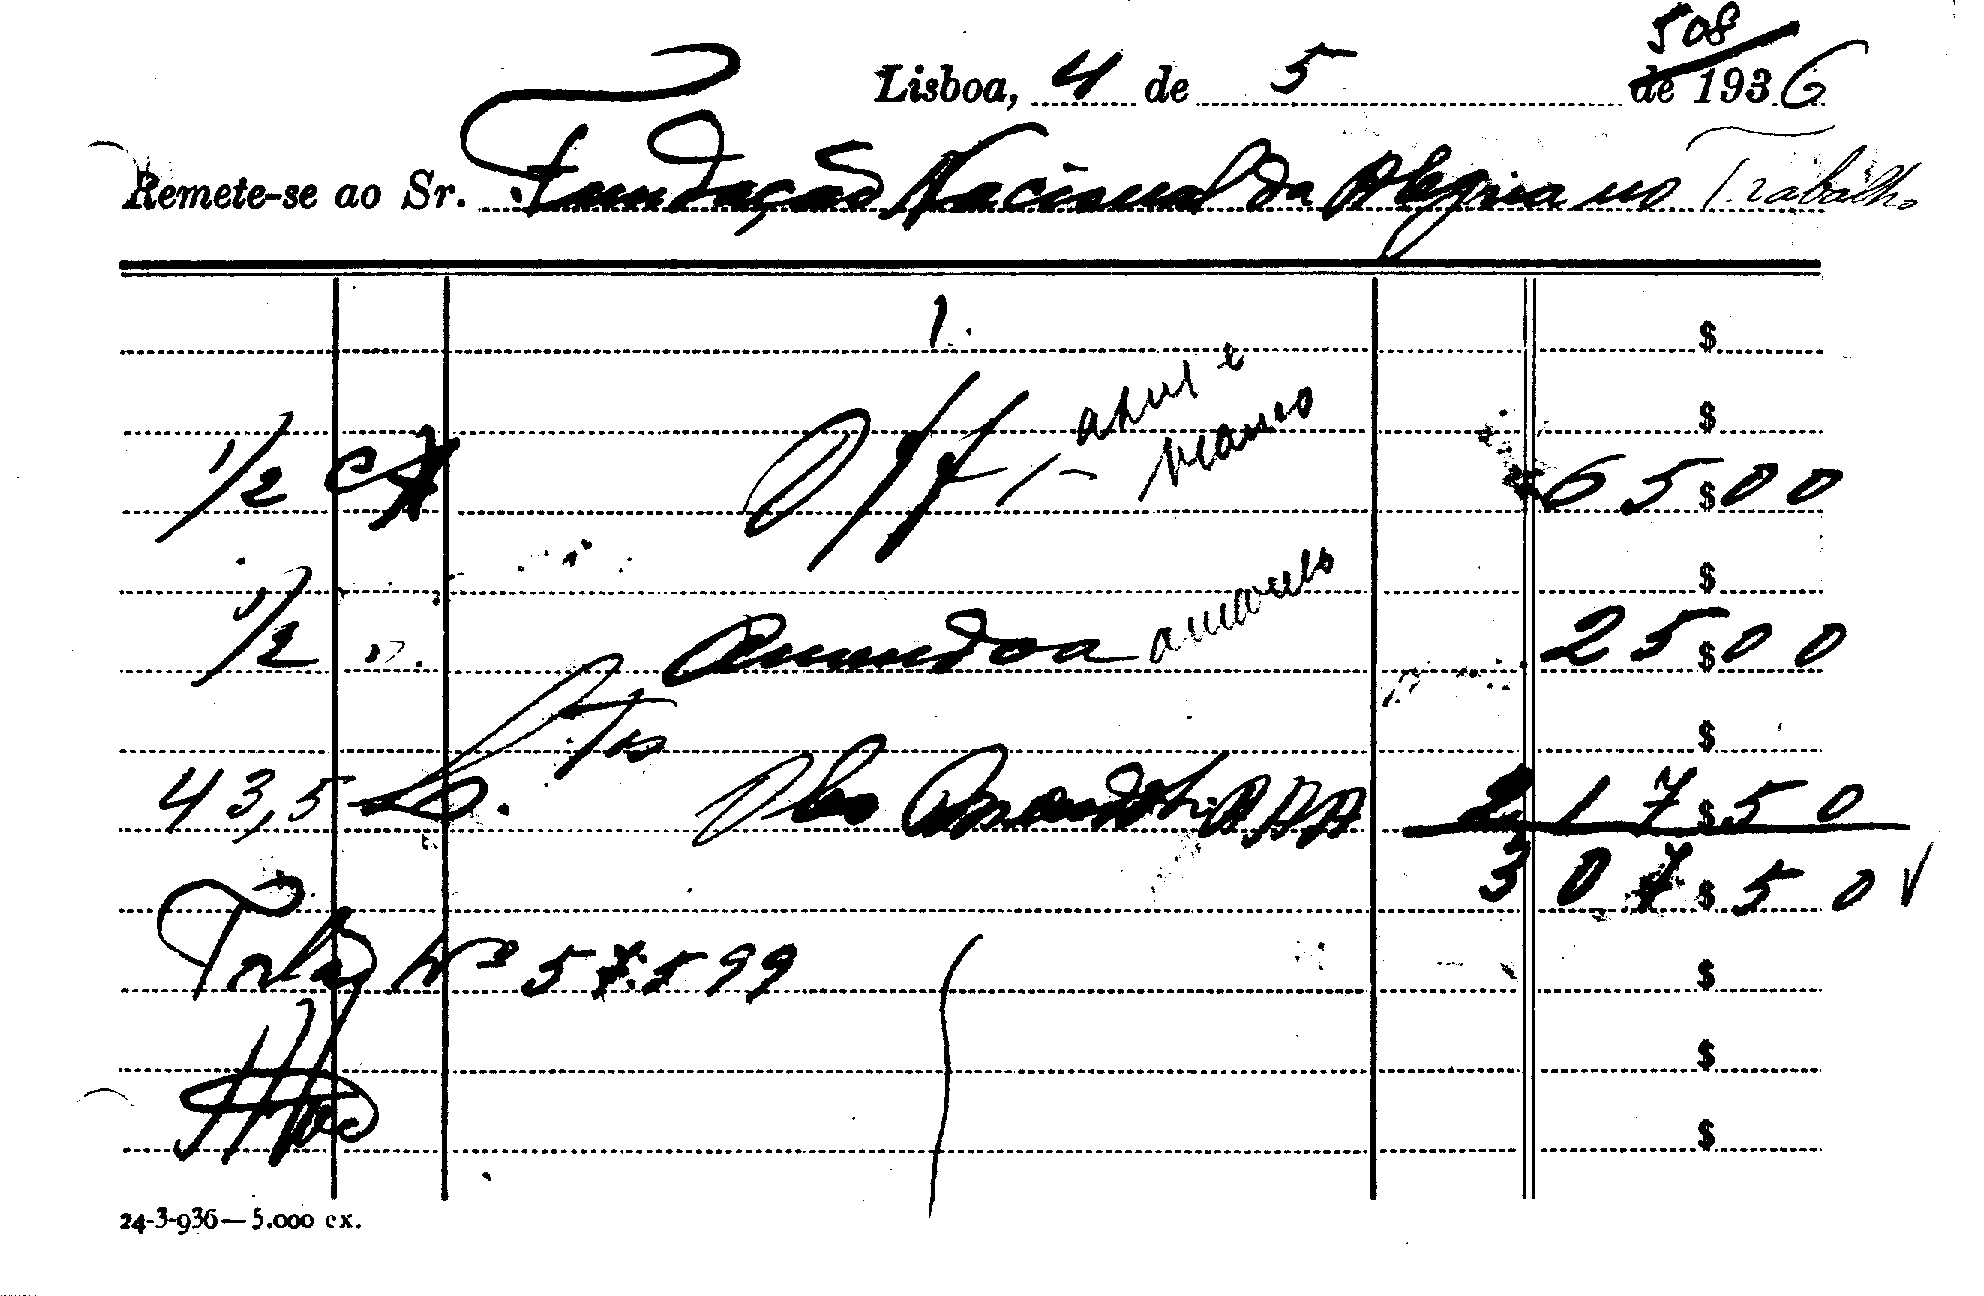 508
Lisboa, 4 de 5 de 1936
Remete-se ao Sr. Fundação Nacional da Alegria no Trabalho
1.
$
$
azul e
branco
1/2 65$00
$
amarelo
1/2 ". Amendoa 25$00
$
43,5 217$50
307$50
Talão Nº 57.599 $
$
$
24-3-936—5.000 ex.